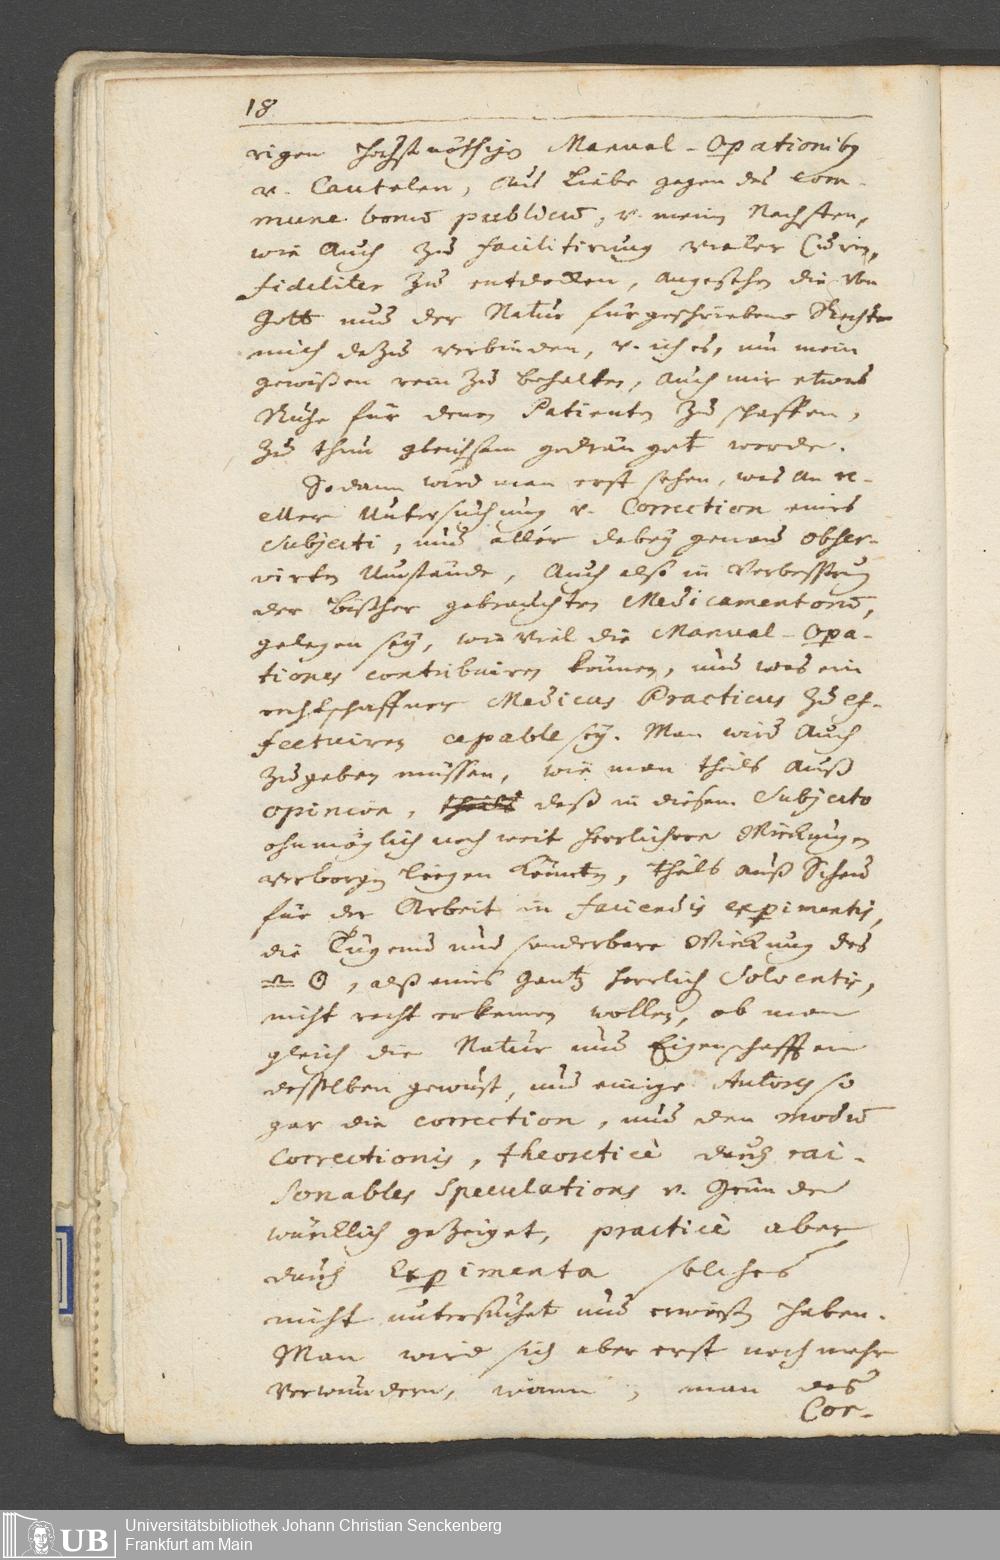 18
rigen höchstnöthigen Manual-Opationiby
v. Cautelen, aus Liebe gegen das com-
mune bonū publicū, v. meinen Nechsten,
wie auch zu facilitirung vieler Curen,
fideliter zu entdecken, angesehen die von
Gott und der Natur fürgeschriebene Rechte
mich dazu verbinden, v. ich es, um mein
gewißen rein zu behalten, auch mir etwas
Ruhe für denen Patienten zu schaffen,
zu thun gleichsam gedränget werde.
Sodann wird man erst sehen, was an re-
eller Untersuchung v. Correction eines
Subjecti, und aller dabey genau obser-
virten Umstände, auch also in Verbesserung
der bißher gebrauchten Medicamentorū,
gelegen sey, wie viel die Manual-Opa-
tiones contribuiren können, und was ein
rechtschaffner Medicus Practicus zu ef-
fectuiren capable sey. Man wird auch
zugeben müssen, wie man theils auß
opinion, theils daß in diesem Subjecto
ohnmöglich noch weit herrlichere Wirckungen
verborgen liegen könten, theils auß Scheu
für der Arbeit in faciendis expimentis,
die Tugend und sonderbare Wirckung des
🜊 ☉, alß eines gantz herrlich Solventis,
nicht recht erkennen wollen, ob man
gleich die Natur und Eigenschafften
desselben gewust, und einige Autores so
gar die correction, und den modū
Correctionis, theoreticè durch rai-
sonables Speculations v. Gründe
würcklich gezeiget, practicè aber
durch Expimenta solches
nicht untersuchet und erwiesen haben.
Man wird sich aber erst noch mehr
verwundern, wann, man das
Cor-
UB
Universitätsbibliothek Johann Christian Senckenberg
Frankfurt am Main